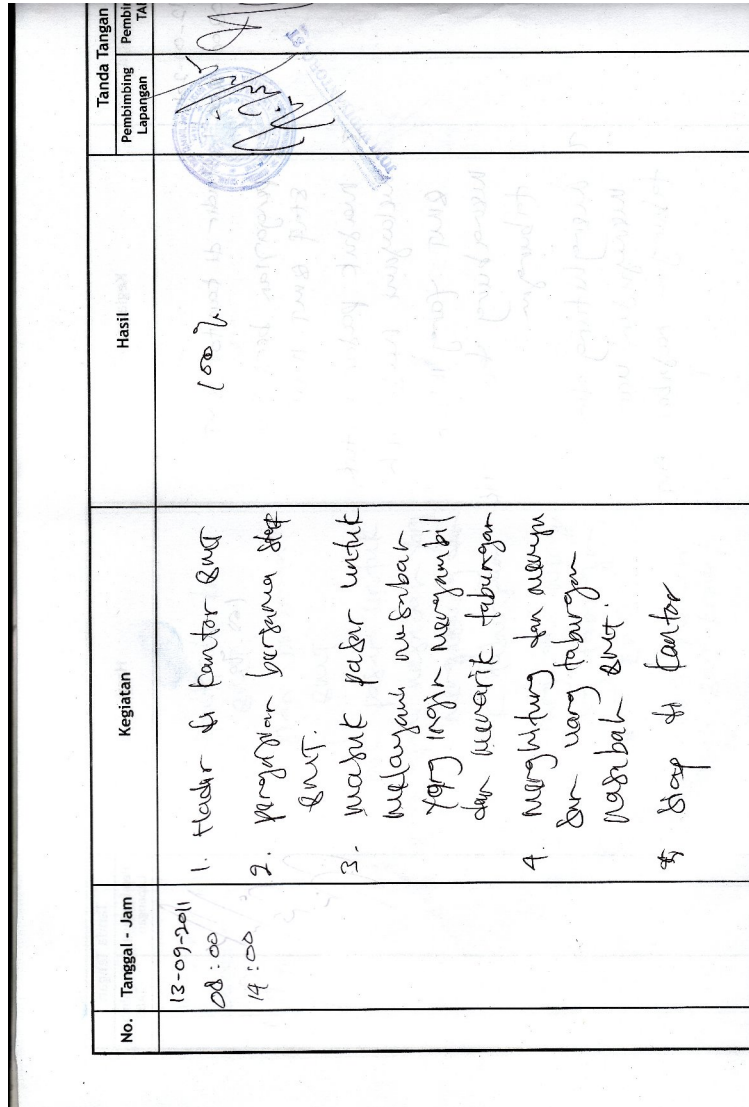 No.
Tanggal - Jam
Kegiatan
Hasil
Tanda Tangan
Pembimbing
Lapangan
Pembi
TA
13-09-2011
08:00
14:00
1. Hadir di kantor BMT
2. pengajian bersama staf
BMT.
3. masuk pasar untuk
melayani nasabah
yang ingin mengambil
dan menarik tabungan
4. menghitung dan menyu
sun uang tabungan
nasabah BMT.
di kantor
100 %